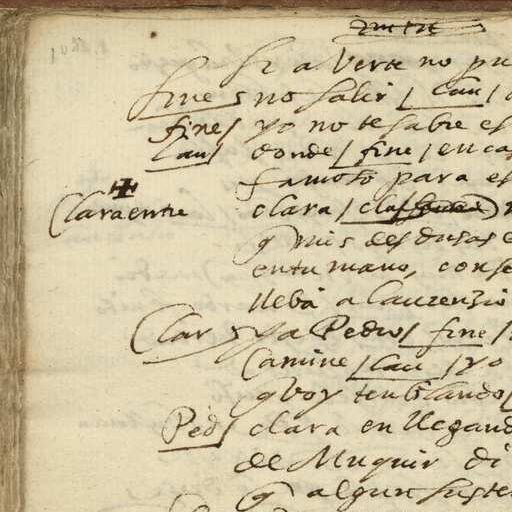 si a verte no pu
fines no salir / lau /
fines / yo no te sabre es
lau / donde / fine / en ca
famoso para es
Claraentre clara /
q mis desdusas e
entu mano, conse
lleba a laurenzio
Clar / ya Pedro / fine /
Camine / lau / yo
q voy temblando
Ped / clara en llegand
de Muquir di
q algun suste